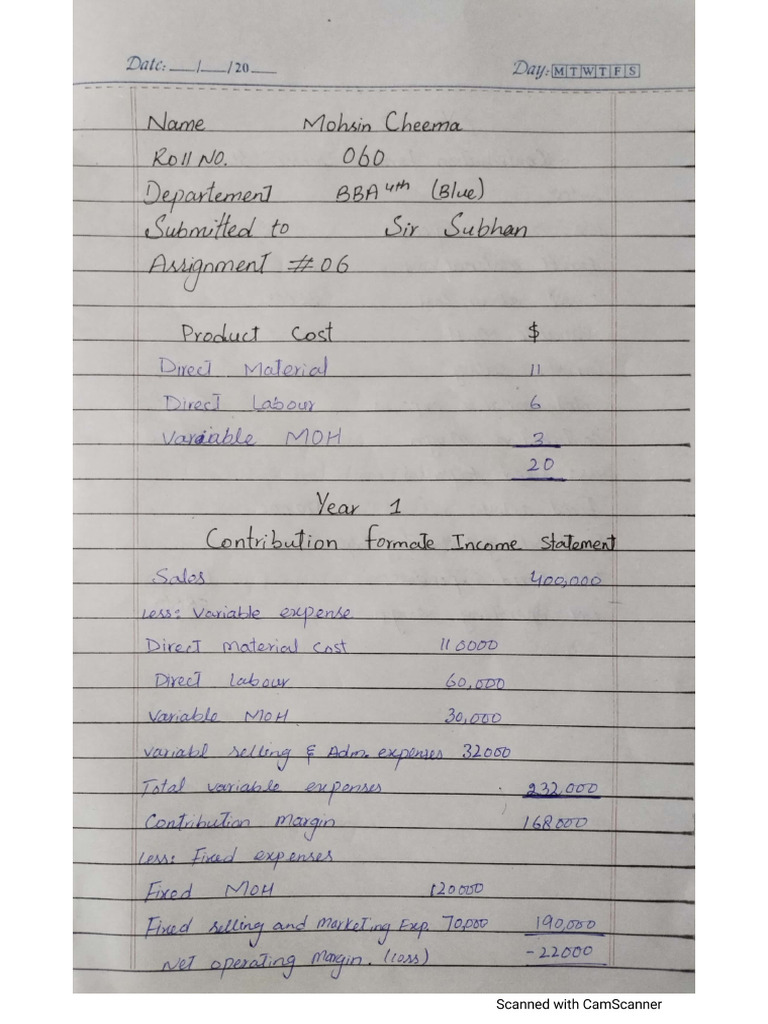 Date: __/__/20__ Day: M T W T F S
Name Mohsin Cheema
Roll NO. 060
Departement BBA 4th (Blue)
Submitted to Sir Subhan
Assignment #06
Product Cost $
Direct Material 11
Direct Labour 6
Variable MOH 3
20
Year 1
Contribution formate Income statement
Sales 400,000
Less: Variable expense
Direct material cost 110000
Direct labour 60,000
Variable MOH. 30,000
variabl selling & Adm. expenses 32000
Total variable expenses 232,000
Contribution margin 168000
Less: Fixed expenses
Fixed MOH 120000
Fixed selling and marketing Exp. 70,000 190,000
Net operating Margin. (loss) -22000
Scanned with CamScanner